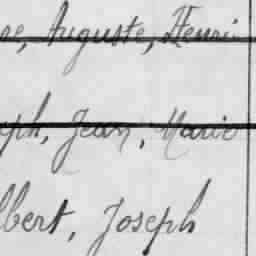 re, Auguste, Henri
eph, Jean, Marie
lbert, Joseph